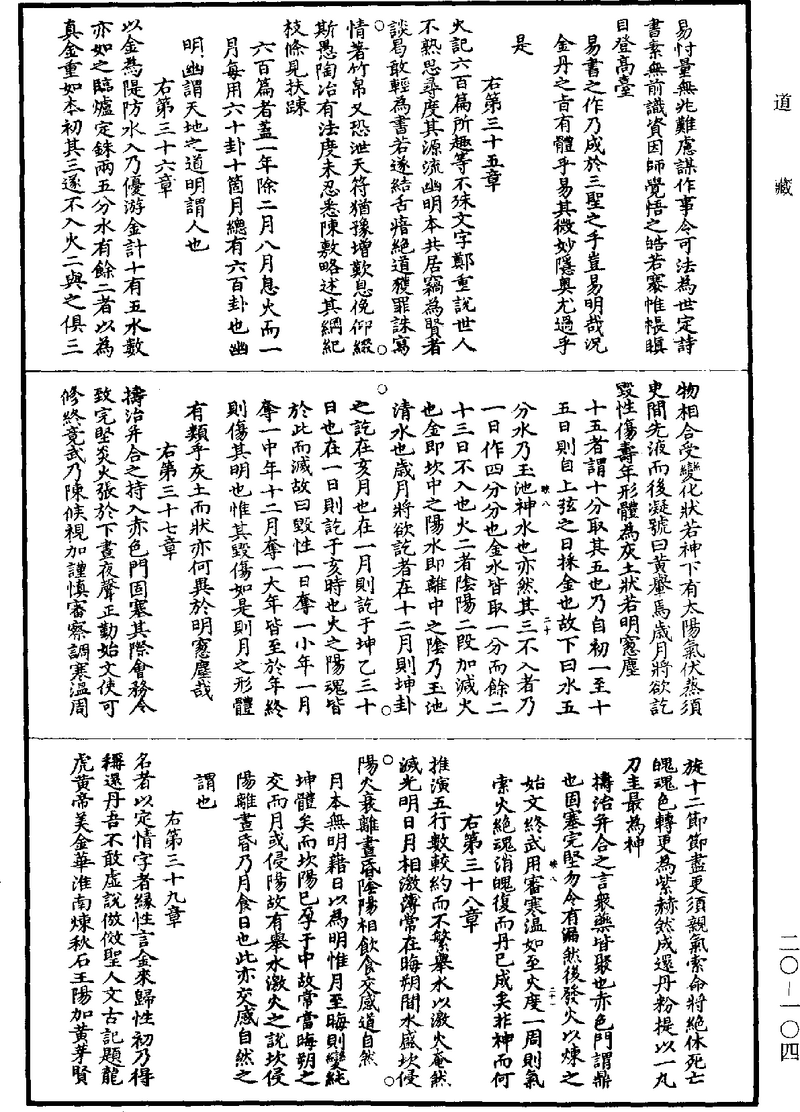 道藏
易忖量無兆難慮謀作事令可法為世定詩
書素無前識資因師覺悟之皓若褰帷帳瞋
目登高臺
易書之作乃成於三聖之手豈易明哉況
金丹之旨有體乎易其微妙隱奧尤過乎
是
右第三十五章
火記六百篇所趣等不殊文字鄭重說世人
不熟思尋度其源流幽明本共居竊為賢者
談曷敢輕為書若遂結舌瘖絕道獲罪誅寫
情著竹帛又恐泄天符猶豫增歎息俛仰綴
斯愚陶冶有法度未忍悉陳敷略述其綱紀
枝條見扶踈
六百篇者蓋一年除二月八月息火而一
月每用六十卦十箇月總有六百卦也幽
明幽謂天地之道明謂人也
右第三十六章
以金為隄防水入乃優游金計十有五水數
亦如之臨爐定銖兩五分水有餘二者以為
真金重如本初其三遂不入火二與之俱三
物相合受變化狀若神下有太陽氣伏蒸須
臾間先液而後凝號曰黃轝焉歲月將欲訖
毀性傷壽年形體為灰土狀若明窻塵
十五者謂十分取其五也乃自初一至十
五日則自上弦之日採金也故下曰水五
分水乃玉池神水也亦然其三不入者乃
一日作四分分也金水皆取一分而餘二
十三日不入也火二者陰陽二段加減火
也金即坎中之陽水即離中之陰乃玉池
清水也歲月將欲訖者在十二月則坤卦
之訖在亥月也在一月則訖于坤乙三十
日也在一日則訖于亥時也火之陽魂皆
於此而滅故曰毀性一日奪一小年一月
奪一中年十二月奪一大年皆至於年終
則傷其明也惟其毀傷如是則月之形體
有類乎灰土而狀亦何異於明窻塵哉
右第三十七章
擣治并合之持入赤色門固塞其際會務令
致完堅炎火張於下晝夜聲正勤始文使可
修終竟武乃陳候視加謹慎審察調寒溫周
旋十二節節盡更須親氣索命將絕休死亡
魄魂色轉更為紫赫然成還丹粉提以一丸
刀圭最為神
擣治并合之言衆藥皆聚也赤色門謂鼎
也固塞完堅勿令有漏然後發火以煉之
始文終武用審寒溫如至火度一周則氣
索火絕魂消魄復而丹已成矣非神而何
右第三十八章
推演五行數較約而不繁舉水以激火奄然
滅光明日月相激薄常在晦朔間水盛坎侵
陽火衰離晝昏陰陽相飲食交感道自然
月本無明藉日以為明惟月至晦則變純
坤體矣而坎陽已孕于中故常當晦朔之
交而月或侵陽故有舉水激火之說坎侵
陽離晝昏乃月食日也此亦交感自然之
謂也
右第三十九章
名者以定情字者緣性言金來歸性初乃得
稱還丹吾不敢虛說倣傚聖人文古記題龍
虎黃帝美金華淮南煉秋石王陽加黃芽賢
二〇-一〇四